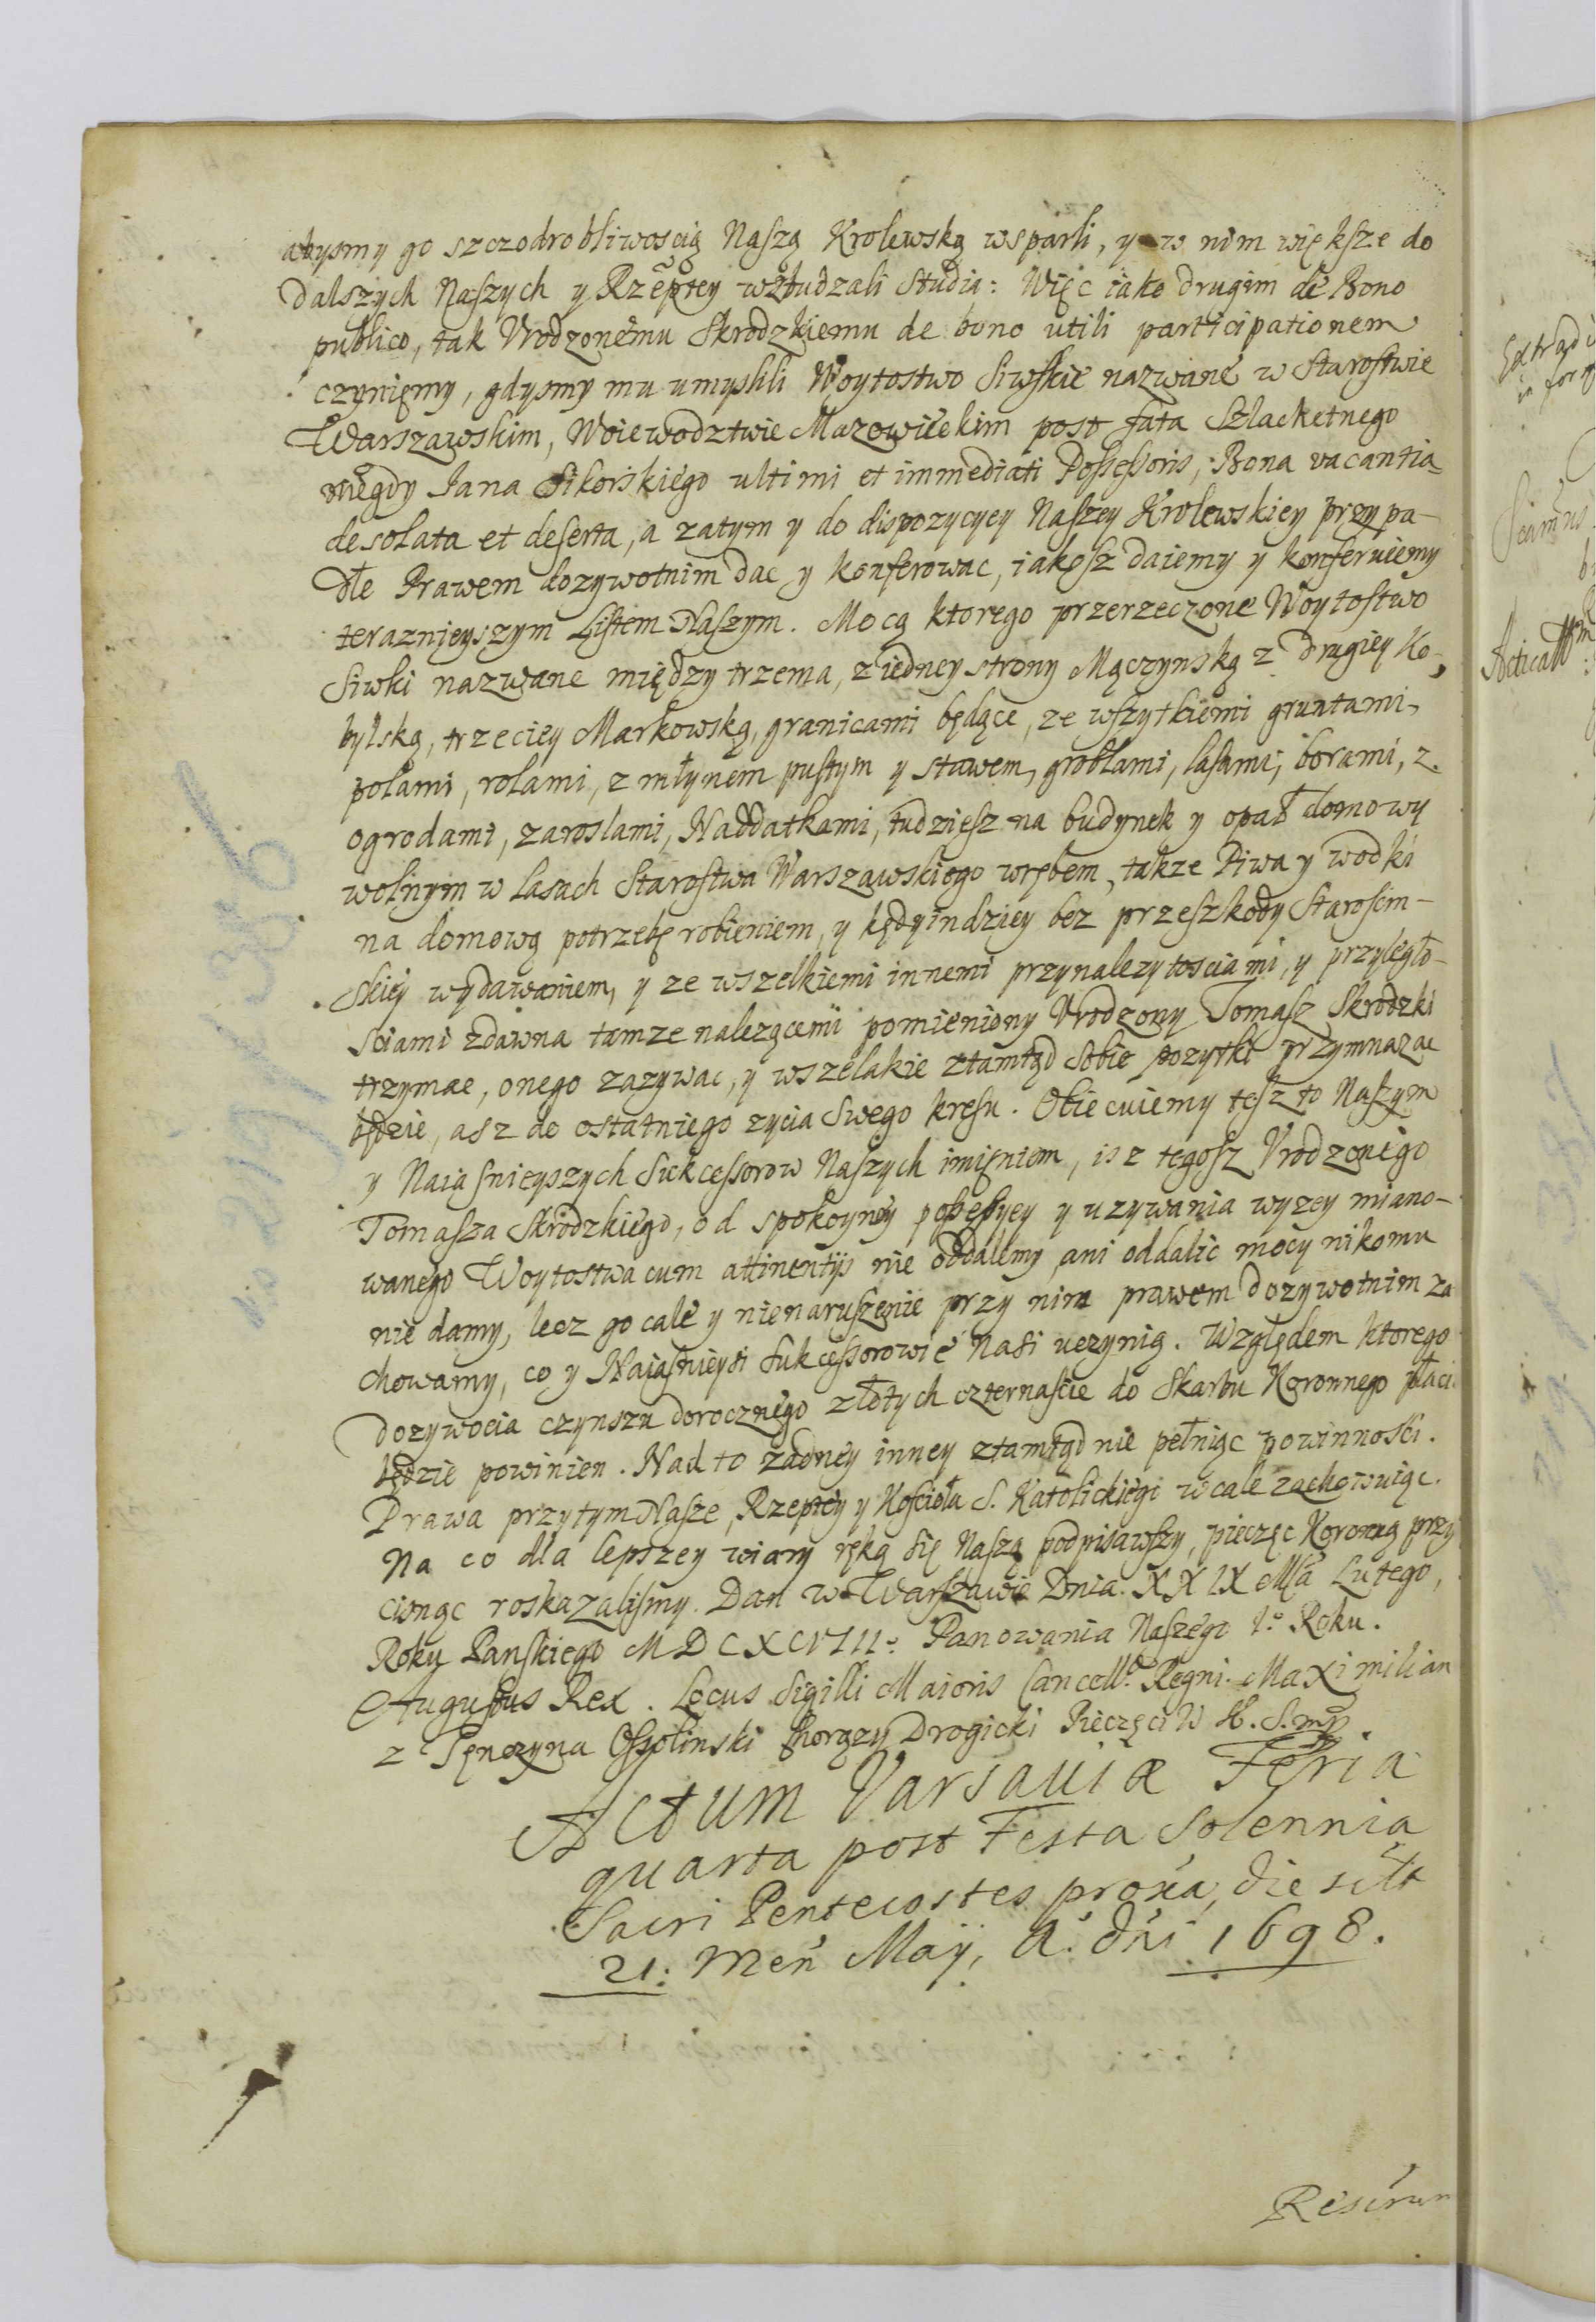 abysmy go szczodrobliwoscią Naszą Krolewską wsparli, y w nim większe do
dalszych Naszych y Rzeptey wzbudzali studia: Więc iako drugim de Bono
publico, tak Vrodzonemu Skrodzkiemu de bono utili participationem
czyniemy, gdysmy mu umyslili Woytostwo Siwskie nazwane w Starostwie
Warszawskim, Woiewodztwie Mazowieckim post fata Szlachetnego
niegdy Jana Sikorskiego ultimi et immediati Possessoris, Bona vacantia
desolata et deserta, a zatym y do dispozycyey Naszey Krolewskiey przypa-
dłe Prawem dozywotnim dac y konferowac, iakosz daiemy y konferuiemy
teraznieyszym Listem Naszym. Mocą ktorego przerzeczone Woytostwo
Siwki nazwane między trzema, z iedney strony Mączynską z drugiey Ko-
bylską, trzeciey Markowską, granicami będące, ze wszytkiemi gruntami,
polami, rolami, z młynem pustym y stawem, groblami, lasami, borami, z
ogrodami, zaroslami, Naddatkami, tudziesz na budynek y opał domowy
wolnym w lasach Starostwa Warszawskiego wrębem, takze Piwa y wodki
na domową potrzebę robieniem, y kędyindziey bez przeszkody Starościn-
skiey wydawaniem, y ze wszelkiemi innemi przynalezytosciami, y przyległo-
sciami zdawna tamze nalezącemi pomieniony Vrodzony Tomasz Skrodzki
trzymac, onego zazywac, y wszelakie ztamtąd sobie pozytki przymnazac
będzie, asz do ostatniego zycia swego kresu. Obiecuiemy tesz to Naszym
y Naiasnieyszych Sukcessorow Naszych imieniem, is z tegosz Vrodzonego
Tomasza Skrodzkiego, od spokoyney possessyey y uzywania wyzey miano-
wanego Woytostwa cum attinentijs nie oddalemy, ani oddalic mocy nikomu
nie damy, lecz go cale y nienaruszenie przy nim prawem dozywotnim za
chowamy, co y Naiasnieysi Sukcessorowie Nasi uczynią. Względem ktorego
dozywocia czynszu dorocznego złotych czternascie do Skarbu Koronnego płaci
będzie powinien. Nad to zadney inney ztamtąd nie pełniąc powinnosci.
Prawa przytym Nasze, Rzeptey y Koscioła S. Katolickiego wcale zachowuiąc.
Na co dla lepszey wiary ręką się Naszą podpisawszy, pieczęc Koronną przy
cisnąc roskazalismy. Dan w Warszawie Dnia XXIX Msca Lutego,
Roku Panskiego MDCXCVIII: Panowania Naszego 1o Roku.
Augustus Rex. Locus Sigilli Maioris Cancell: Regni. Maximilian
z Tęnczyna Ossolinski Chorązy Drogicki Pieczęci W K. S. mp.
Actum Varsaviæ Feria
quarta post Festa Solennia
Sacri Pentecostes proxa, die scilt
21: Men Maÿ, A. dni 1698.